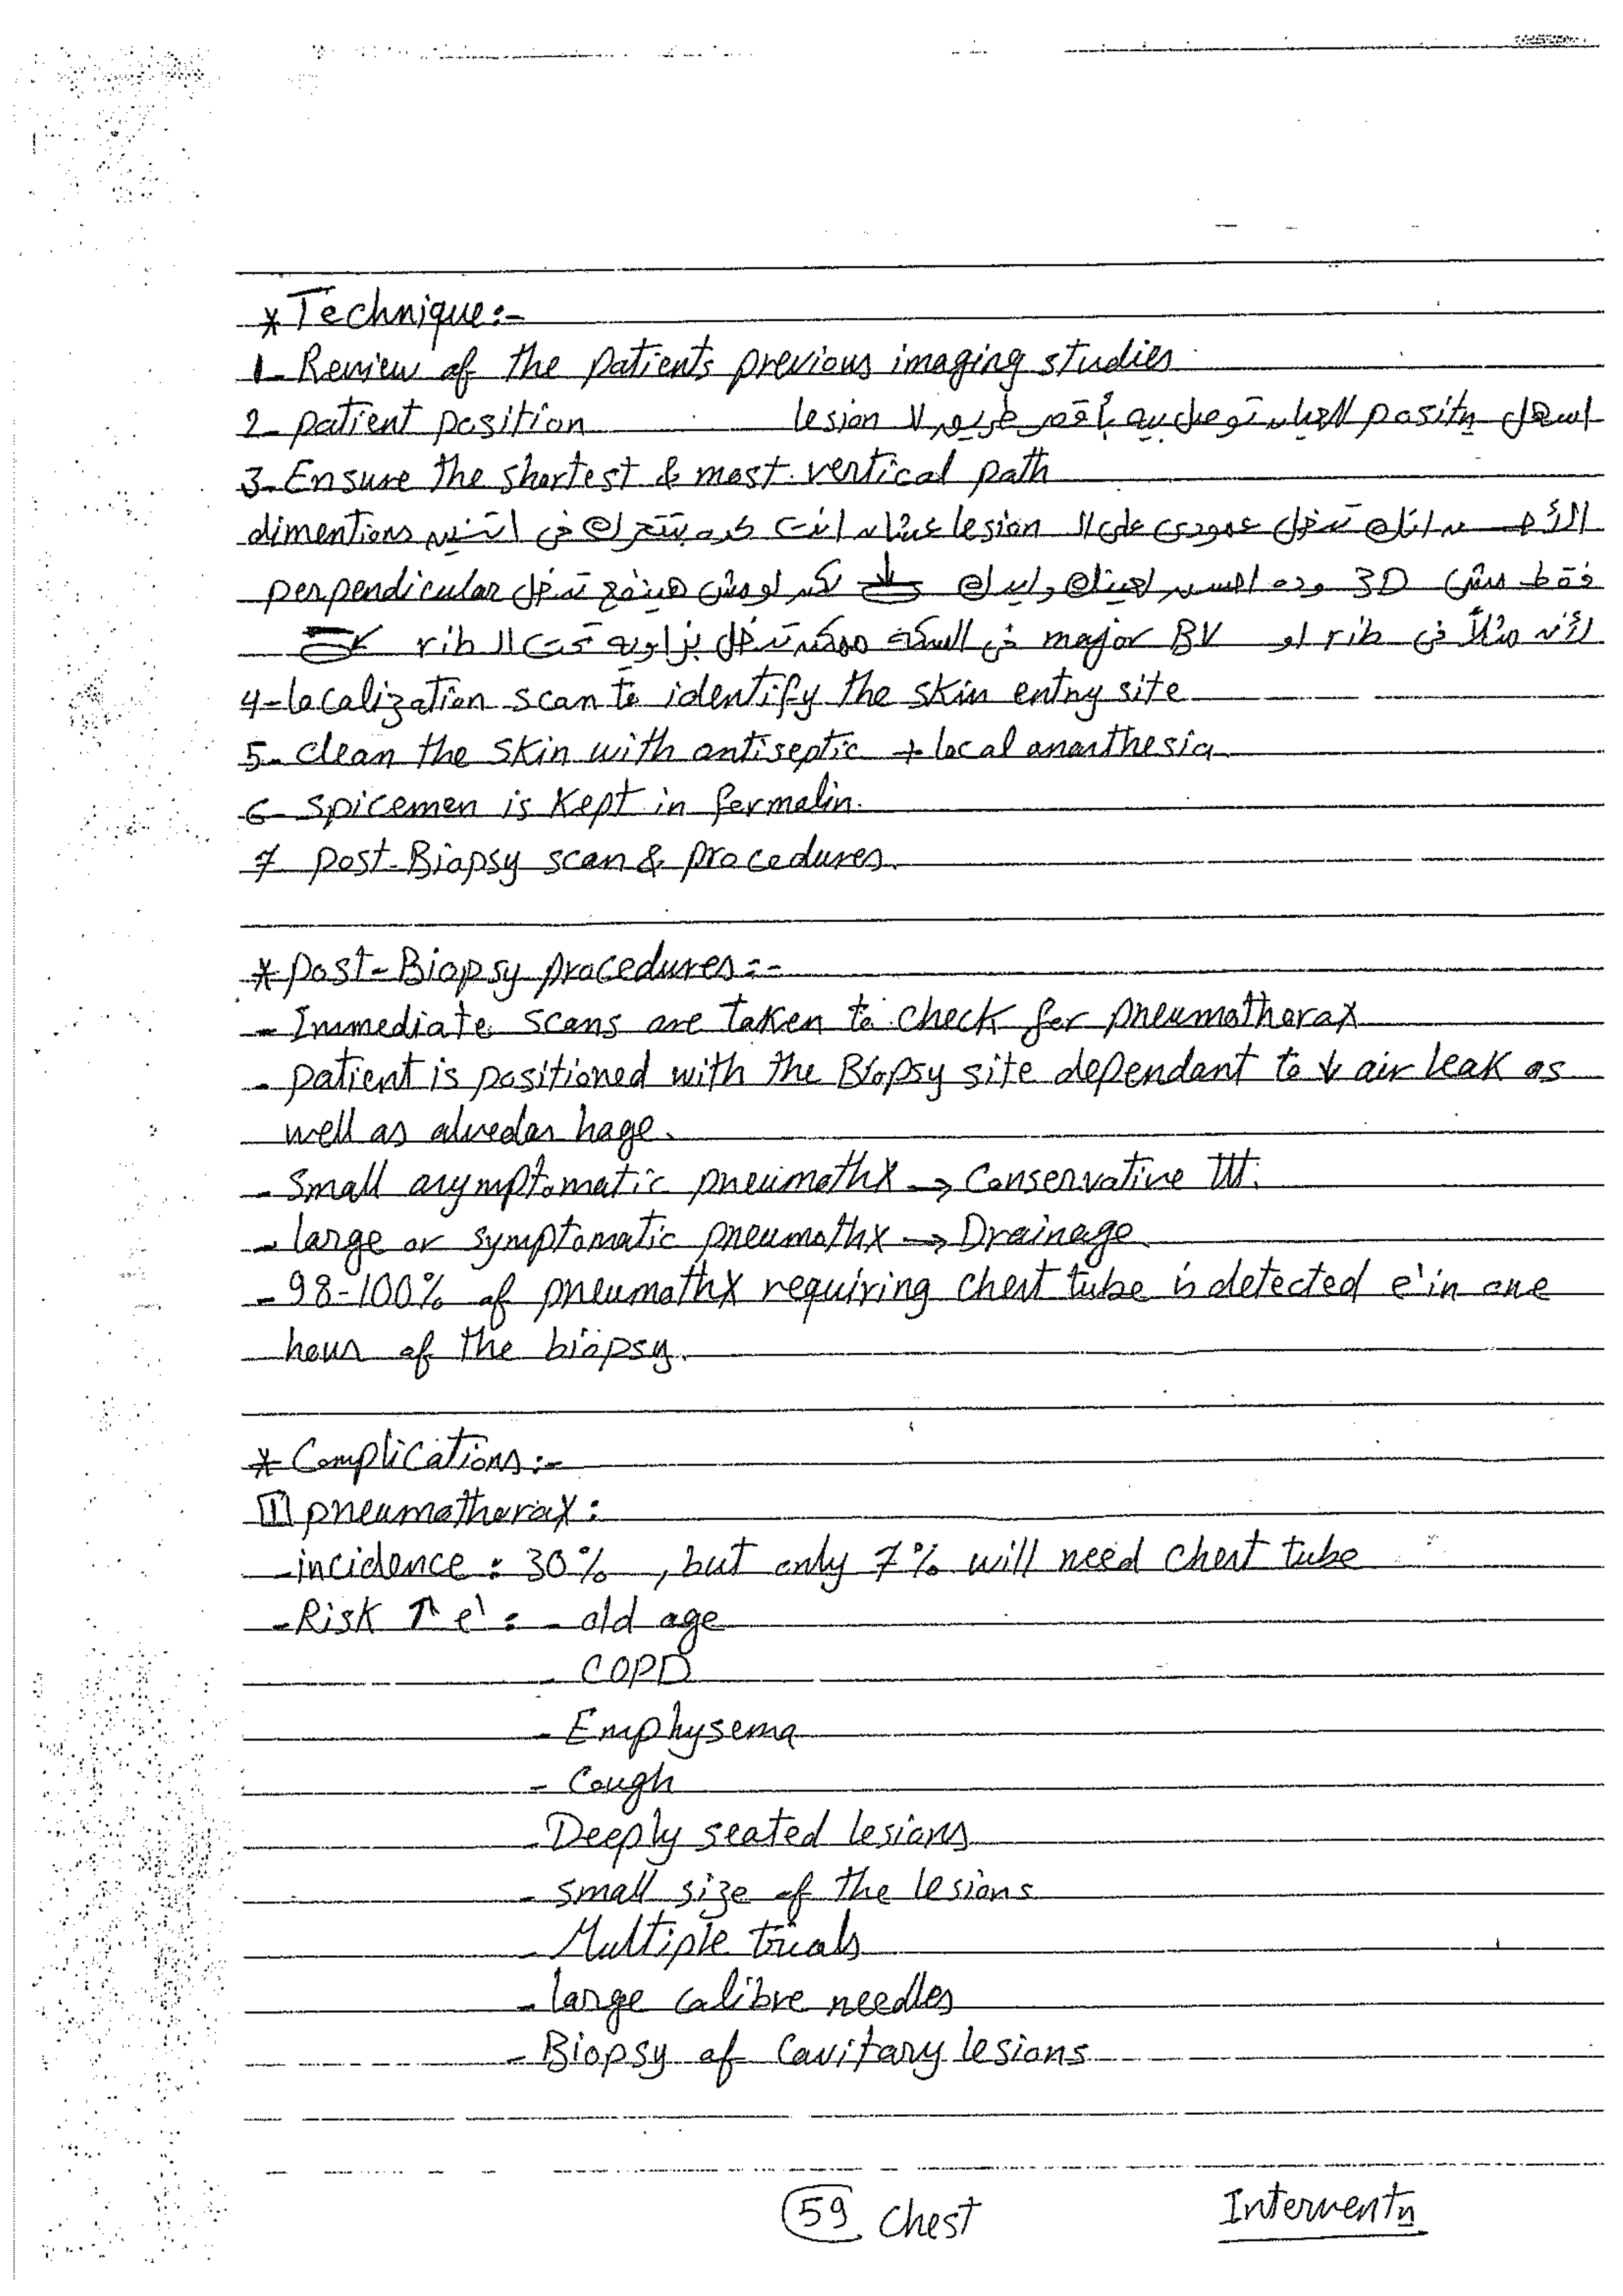 * Technique:-
1- Review of the patients previous imaging studies
2- patient position اسهل positn للعيان توصل بيه بأقصر طريق لا lesion
3- Ensure the shortest & most vertical path
الأهم انك تدخل عمودى على ال lesion عشان انت كده بتتحرك فى اتنين dimentions
فقط مش 3D وده احسن لعينك وايدك لكن لو مش هينفع تدخل perpendicular
لأنه مثلاً فى rib او major BV فى السكة ممكن تدخل بزاوية تحت ال rib
4- localization scan to identify the skin entry site
5- clean the skin with antiseptic + local anasthesia
6- Spicemen is kept in formalin.
7- post-Biopsy scan & procedures.
* post-Biopsy procedures:-
- Immediate scans are taken to check for pneumothorax
- patient is positioned with the Biopsy site dependant to ↓ air leak as
well as alveolar hage.
- Small asymptomatic pneumothx → Conservative ttt.
- large or symptomatic pneumothx → Drainage
- 98-100% of pneumothx requiring chest tube is detected e' in one
hour of the biopsy.
* Complications:-
1 pneumothorax:
- incidence: 30%, but only 7% will need chest tube
- Risk ↑ e': - old age
- COPD
- Emphysema
- Cough
- Deeply seated lesions
- small size of the lesions
- Multiple trials
- large calibre needles
- Biopsy of Cavitary lesions
59 chest Interventn